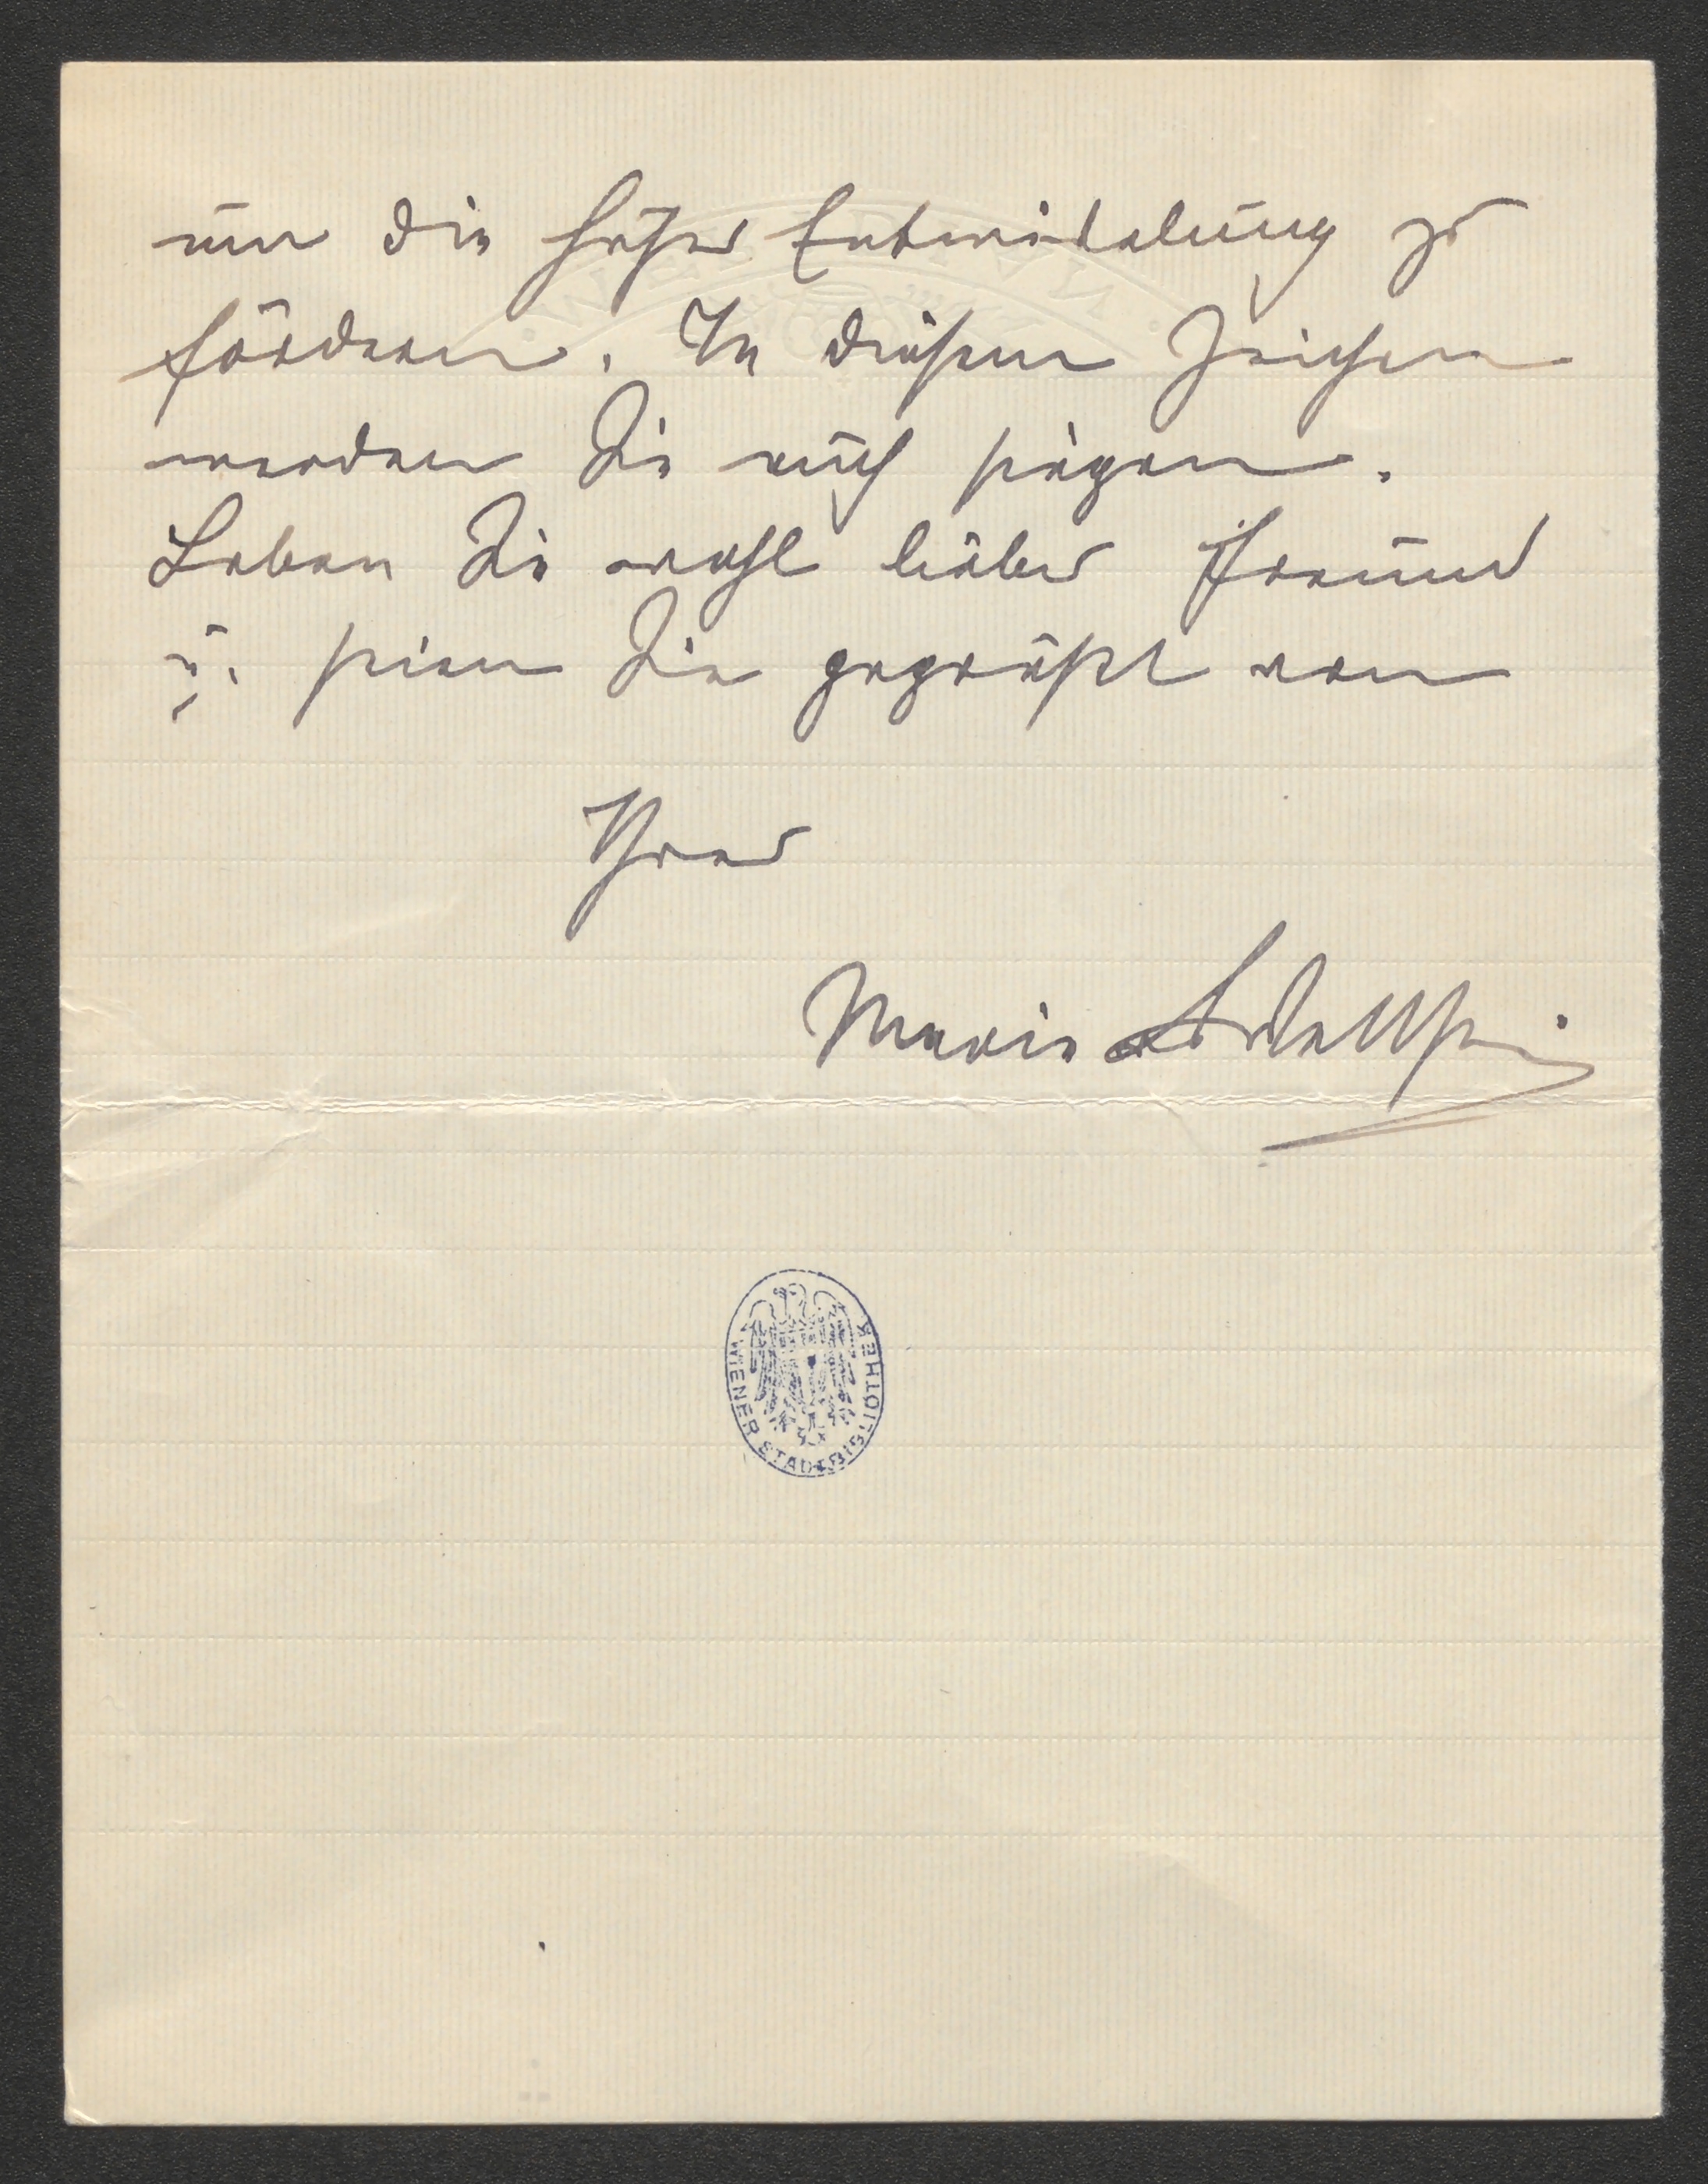 um die höher Entwickelung zu
fördern. In diesem Zeichen
werden Sie auch siegen.
Leben Sie wohl lieber Freund
u. seien Sie gegrüßt von
Ihrer
Marie
WIENER STADTBIBLIOTHEK